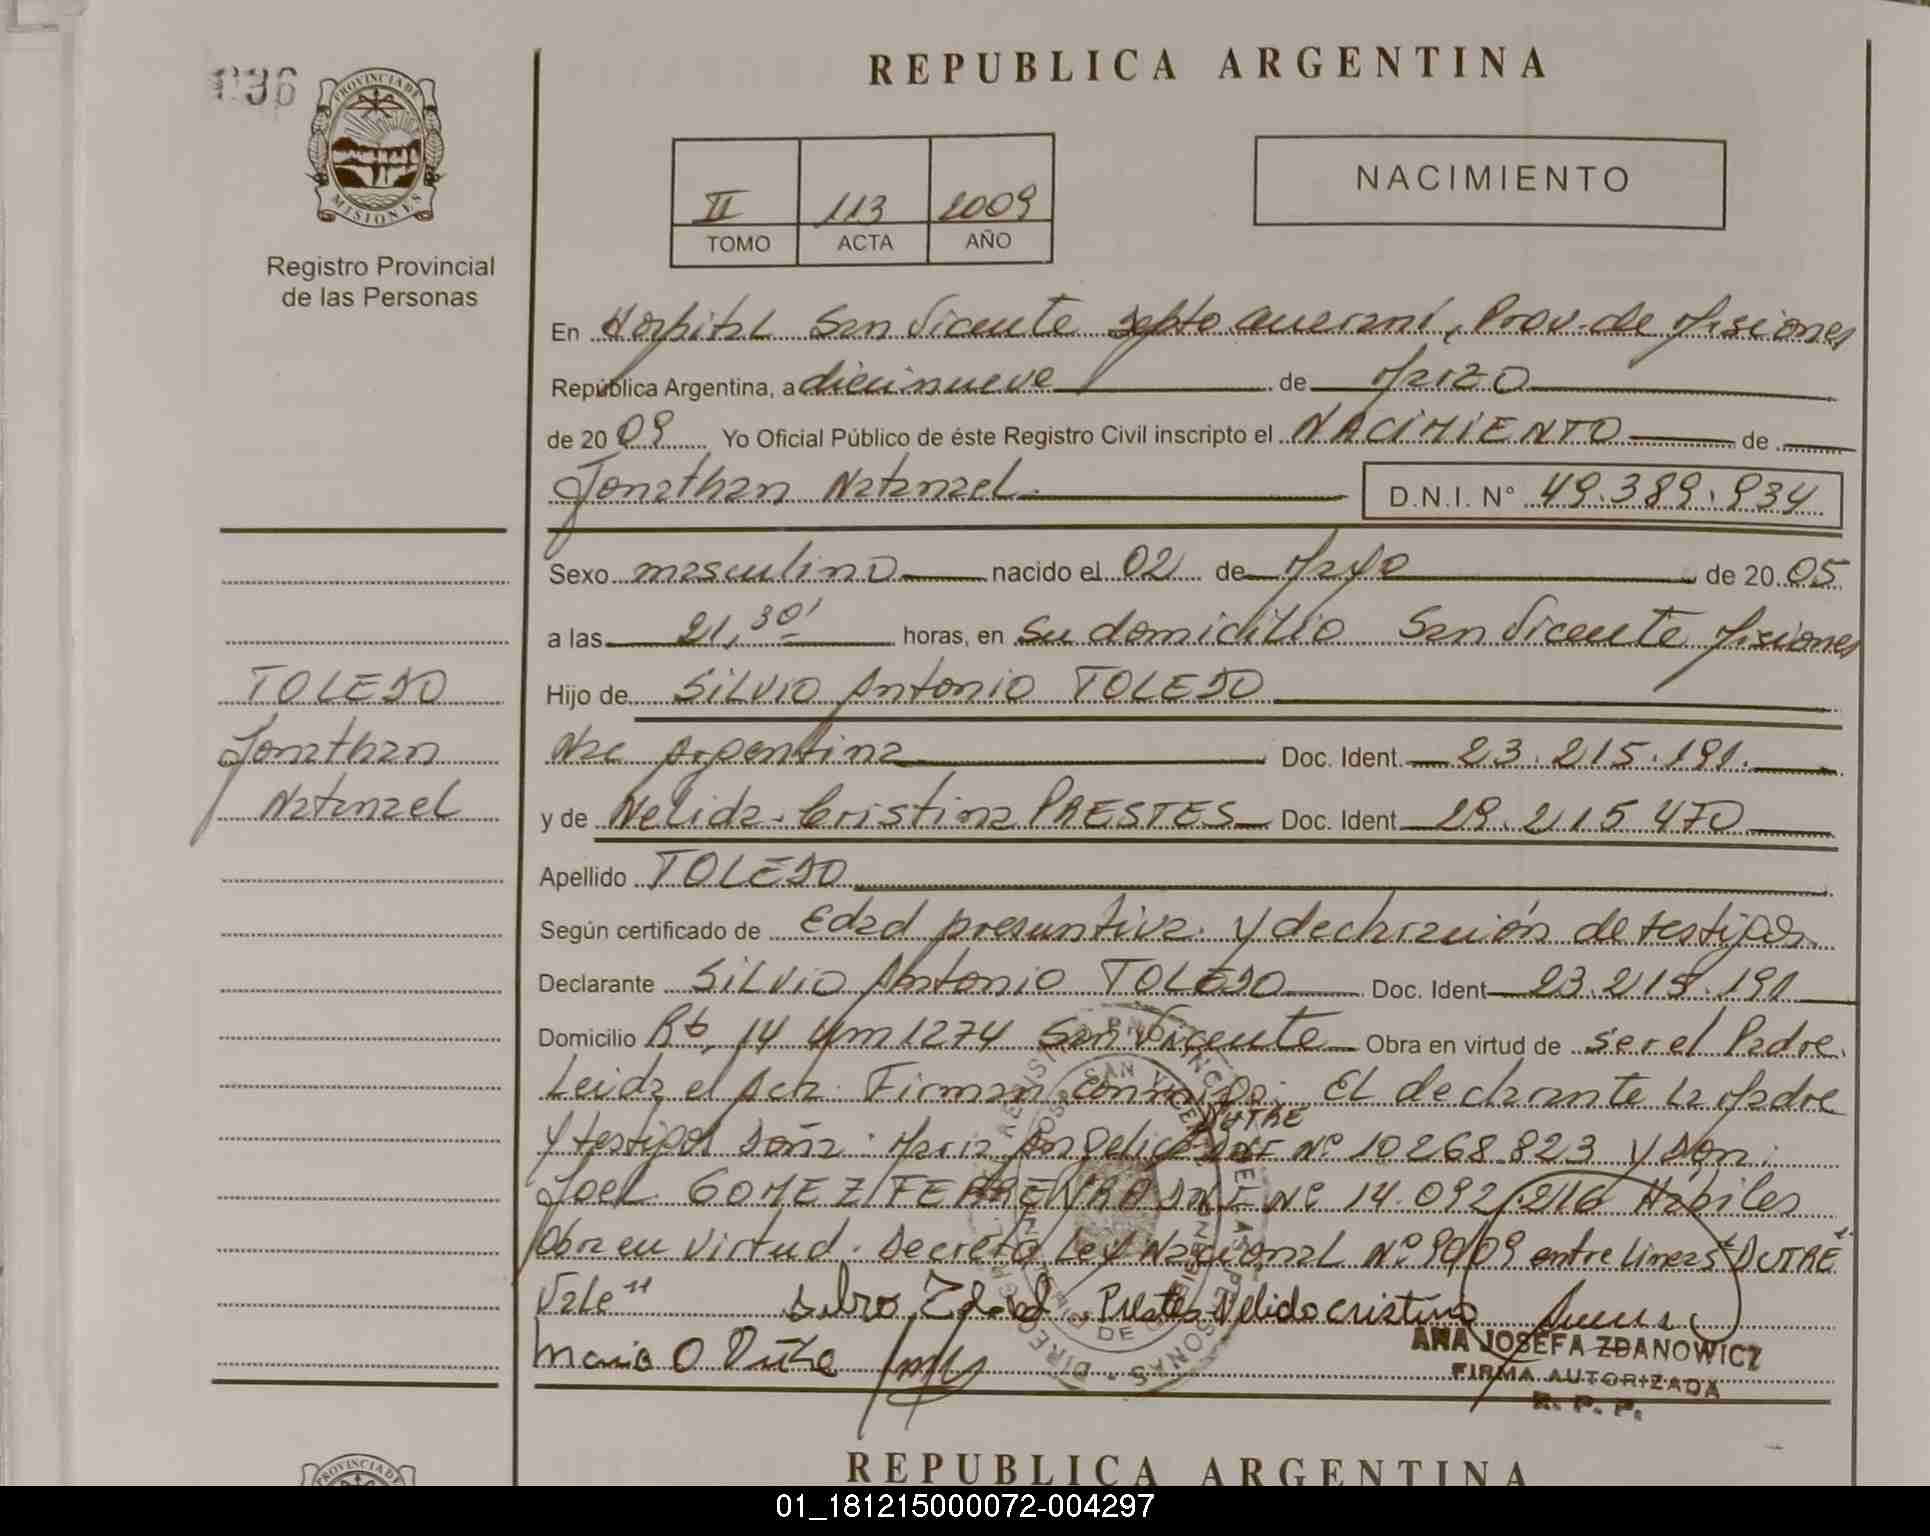 REPUBLICA ARGENTINA
PROVINCIA DE
MISIONES
Registro Provincial
de las Personas
II 113 2009
TOMO ACTA AÑO
NACIMIENTO
En Hospital San Vicente Depto Guaraní, Prov. de Misiones
República Argentina, a diecinueve de Marzo
de 20 09 Yo Oficial Público de éste Registro Civil inscripto el NACIMIENTO de
Jonathan Natanael. D.N.I. N° 49.389.934
Sexo masculino nacido el 02 de Mayo de 20 05
a las 21,30' horas, en su domicilio San Vicente Misiones
Hijo de Silvio Antonio TOLEDO
Nac Argentina Doc. Ident. 23.215.191.
y de Nelida Cristina PRESTES Doc. Ident 29.215 470
Apellido TOLEDO
Según certificado de Edad presuntiva y declaración de testigos
Declarante Silvio Antonio TOLEDO Doc. Ident 23.215.191
Domicilio Rta, 14 Km 1274 San Vicente Obra en virtud de ser el Padre.
Leida el Acta Firman conmigo: El declarante la Madre
DUTRE
y testigos Doña: Maria Angelica DNI Nº 10268.823 y Don:
Joel GOMEZ FERREYRA DNI Nº 14.092.216 Hábiles
Obra en virtud. Decreto Ley Nacional Nº 90/09 entre lineas "DUTRE"
Vale"
Prestes Nelida cristina
ANA JOSEFA ZDANOWICZ
FIRMA AUTORIZADA
R. P. P.
TOLEDO
Jonathan
Natanael
REPUBLICA ARGENTINA
PROVINCIA DE
01_181215000072-004297